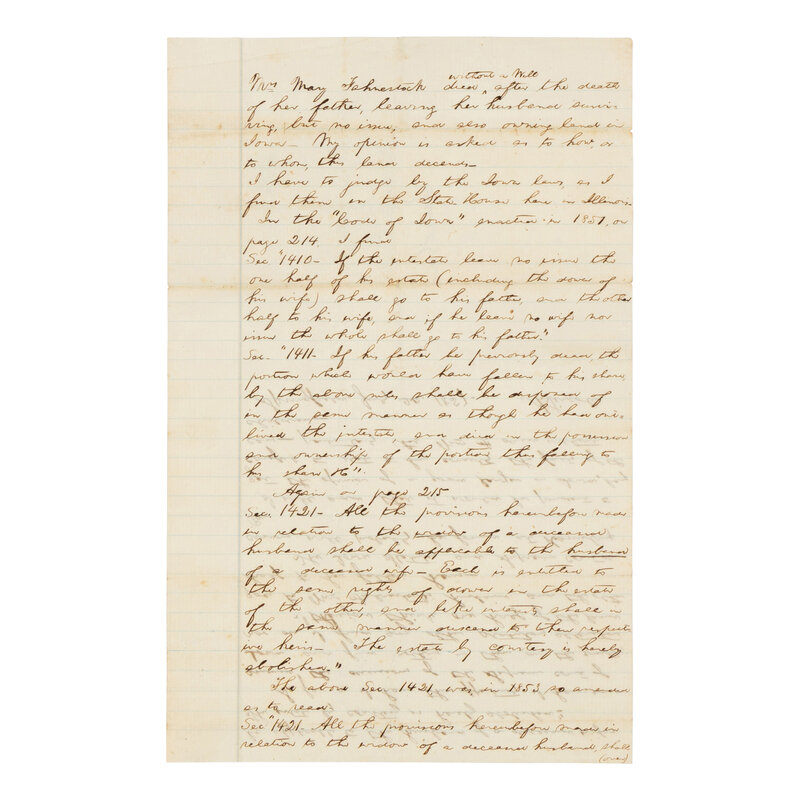 Mrs Mary Fahnestock died ^without a Will^ after the death
of her father, leaving her husband survi-
ving, but no issue, and also owning land in
Iowa — My opinion is asked as to how, or
to whom, this land decends —
I have to judge by the Iowa law, as I
find them in the State House here in Illinois.
In the "Code of Iowa" enacted in 1851, on
page 214. I find
Sec "1410 — If the intestate leave no issue the
one half of his estate (including the dower of
his wife) shall go to his father, and the other
half to his wife, and if he leave no wife nor
issue the whole shall go to his father."
Sec — "1411 — If his father be previously dead, the
portion which would have fallen to his share
by the above rules shall be disposed of
in the same manner as though he had out-
lived the intestate, and died in the possession
and ownership of the portion thus falling to
his share &c".
Again on page 215
Sec. 1421 — All the provisions hereinbefore made
in relation to the widow of a deceased
husband shall be applicable to the husband
of a deceased wife — Each is entitled to
the same rights of dower in the estate
of the other, and like interests shall in
the same manner descend to their respect-
ive heirs — The estate by courtesy is hereby
abolished."
The above Sec. 1421 was in 1853 so amended
as to read
Sec "1421. All the provisions hereinbefore made in
relation to the widow of a deceased husband, shall
(over)